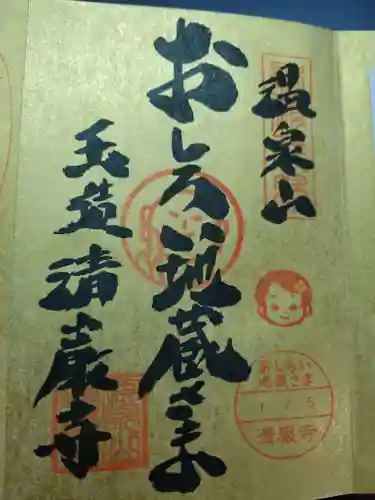 温泉山
おしろい地蔵さま
玉造清巖寺
おしろい
地蔵さま
1 / 5
清巖寺